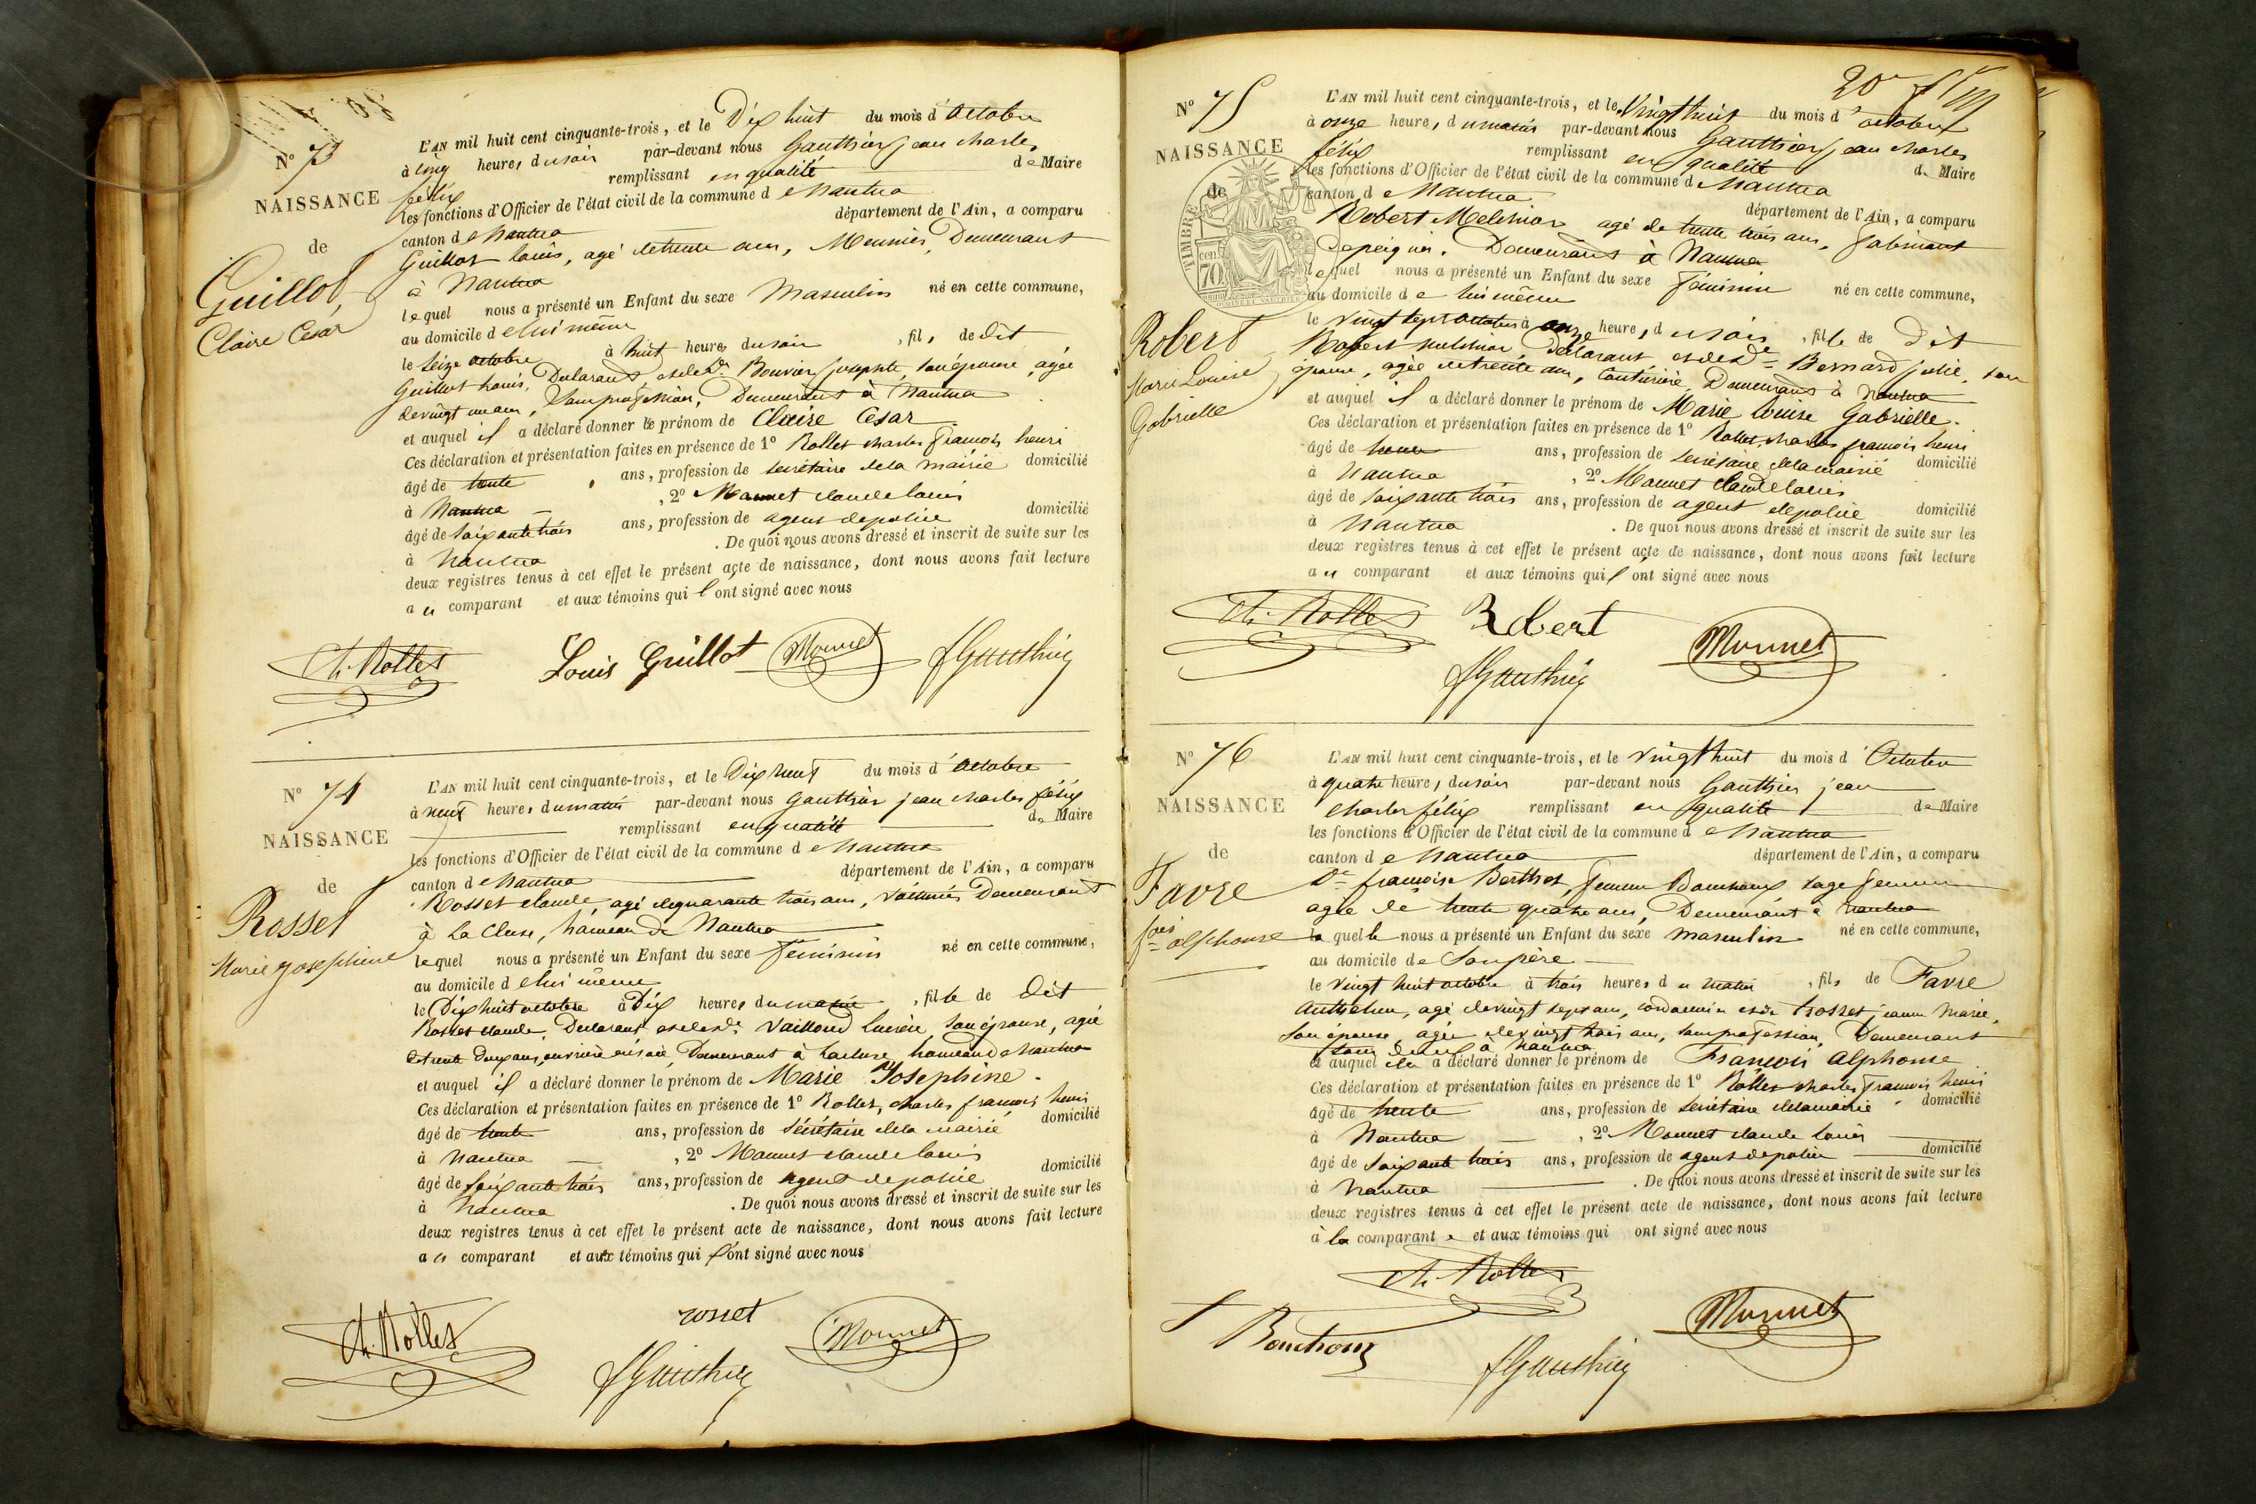 N° 73
NAISSANCE
de
Guillot
Claire César
L'AN mil huit cent cinquante-trois, et le Dix huit du mois d'octobre
à cinq heures du soir par-devant nous Gauthier jean charles
félix remplissant en qualité de Maire
les fonctions d'Officier de l'état civil de la commune de Nantua
canton de Nantua département de l'Ain, a comparu
Guillot louis, agé de trente ans, Meunier, Demeurant
à Nantua
lequel nous a présenté un Enfant du sexe Masculin né en cette commune,
au domicile de lui même
le seize octobre à huit heures du soir, fils de dit
Guillot louis, Déclarant, et de de Bouvier josephte, son épouse, agée
de vingt un ans, sans profession, Demeurant à Nantua
et auquel il a déclaré donner le prénom de Claire César
Ces déclaration et présentation faites en présence de 1° Rollet charles françois henri
âgé de trente ans, profession de secrétaire de la mairie domicilié
à Nantua, 2° Monnet claude louis
âgé de soixante trois ans, profession de agent de police domicilié
à Nantua. De quoi nous avons dressé et inscrit de suite sur les
deux registres tenus à cet effet le présent acte de naissance, dont nous avons fait lecture
au comparant et aux témoins qui l'ont signé avec nous
Ch. Rollet Louis Guillot Monnet f Gauthier
N° 74
NAISSANCE
de
Rosset
Marie josephine
L'AN mil huit cent cinquante-trois, et le Dix neuf du mois d'octobre
à neuf heures du matin par-devant nous Gauthier jean charles félix
remplissant en qualité de Maire
les fonctions d'Officier de l'état civil de la commune de Nantua
canton de Nantua département de l'Ain, a comparu
Rosset claude, agé de quarante trois ans, voiturier Demeurant
à La Cluse, hameau de Nantua
lequel nous a présenté un Enfant du sexe féminin né en cette commune,
au domicile de lui même
le Dix huit octobre à Dix heures du matin, fille de dit
Rosset claude, Déclarant, et de de Vailloud lucrèce, son épouse, agée
de trente Deux ans, ouvrière en soie, Demeurant à la cluse, hameau de Nantua
et auquel il a déclaré donner le prénom de Marie Josephine.
Ces déclaration et présentation faites en présence de 1° Rollet, charles françois henri
âgé de trente ans, profession de sécrétaire de la mairie domicilié
à Nantua, 2° Monnet claude louis
âgé de soixante trois ans, profession de agent de police domicilié
à Nantua. De quoi nous avons dressé et inscrit de suite sur les
deux registres tenus à cet effet le présent acte de naissance, dont nous avons fait lecture
au comparant et aux témoins qui l'ont signé avec nous
Ch. Rollet rosset Monnet
f Gauthier
20e
N° 75
NAISSANCE
de
TIMBRE
70
Robert
Marie Louise
Gabrielle
L'AN mil huit cent cinquante-trois, et le Vingt huit du mois d'octobre
à onze heures du matin par-devant nous Gauthier jean charles
félix remplissant en qualité de Maire
les fonctions d'Officier de l'état civil de la commune de Nantua
canton de Nantua département de l'Ain, a comparu
Robert Melchior agé de trente trois ans, fabricant
de peignes, Demeurant à Nantua
lequel nous a présenté un Enfant du sexe féminin né en cette commune,
au domicile de lui même
le vingt sept octobre à onze heures du soir, fille de Dit
Robert melchior Déclarant et de de Bernard julie, son
épouse, agée de trente ans, couturière, Demeurant à Nantua
et auquel il a déclaré donner le prénom de Marie louise Gabrielle.
Ces déclaration et présentation faites en présence de 1° Rollet charles françois henri
âgé de trente ans, profession de secrétaire de la mairie domicilié
à Nantua, 2° Monnet claude louis
âgé de soixante trois ans, profession de agent de police domicilié
à Nantua. De quoi nous avons dressé et inscrit de suite sur les
deux registres tenus à cet effet le présent acte de naissance, dont nous avons fait lecture
au comparant et aux témoins qui l'ont signé avec nous
Ch. Rollet Robert Monnet
f Gauthier
N° 76
NAISSANCE
de
Favre
fois alphonse
L'AN mil huit cent cinquante-trois, et le vingt huit du mois d'Octobre
à quatre heures du soir par-devant nous Gauthier jean
charles félix remplissant en qualité de Maire
les fonctions d'Officier de l'état civil de la commune de Nantua
canton de Nantua département de l'Ain, a comparu
De françoise Berthet, femme Bouchoux sage femme
agée de trente quatre ans, Demeurant à Nantua
laquelle nous a présenté un Enfant du sexe masculin né en cette commune,
au domicile de son père
le vingt huit octobre à trois heures du matin, fils de Favre
anthelme, agé de vingt sept ans, cordonnier et de Rosset jeanne Marie,
son épouse, agée de vingt trois ans, sans profession, Demeurant
tous deux à Nantua
et auquel elle a déclaré donner le prénom de François alphonse
Ces déclaration et présentation faites en présence de 1° Rollet charles françois henri
âgé de trente ans, profession de secrétaire de la mairie domicilié
à Nantua, 2° Monnet claude louis
âgé de soixante trois ans, profession de agent de police domicilié
à Nantua. De quoi nous avons dressé et inscrit de suite sur les
deux registres tenus à cet effet le présent acte de naissance, dont nous avons fait lecture
à la comparante et aux témoins qui ont signé avec nous
Ch. Rollet
f Bouchoux f Gauthier Monnet